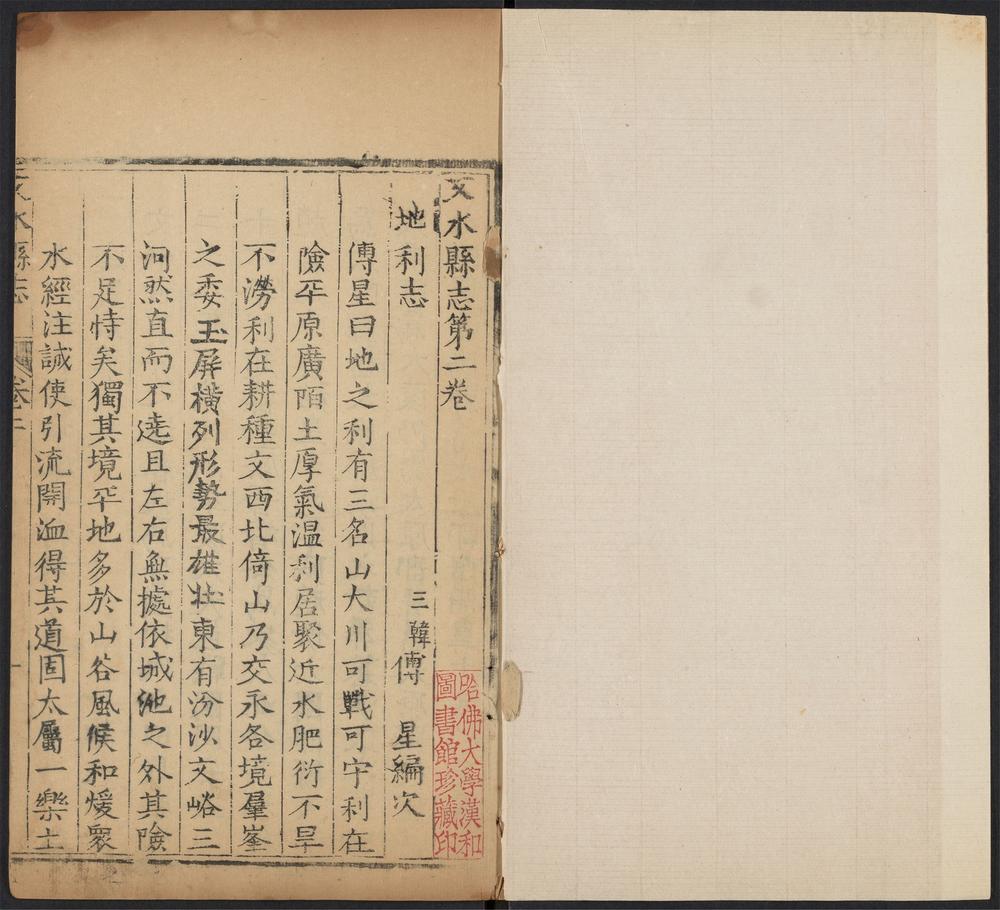 文水縣志第二卷
地利志
三韓傅 星編次
傅星曰地之利有三名山大川可戰可守利在
險平原廣陌土厚氣温利居聚近水肥衍不旱
不澇利在耕種文西北倚山乃交永各境羣峯
之委玉屏橫列形勢最雄壯東有汾沙文峪三
河然直而不遶且左右無據依城池之外其險
不足恃矣獨其境平地多於山谷風候和煖衆
水經注誠使引流開洫得其道固太屬一樂土
文水縣志 卷二 一
哈佛大學漢和
圖書館珍藏印